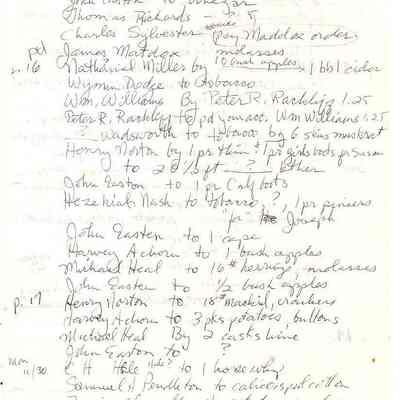 to vinegar
Thomas Richards
Charles Sylvester pay Maddox order
pd James Maddox molasses
p. 16 Nathanial Miller by 10 bush apples, 1 bbl cider
Wymin Dodge to tobacco
Wm. Williams By Peter R. Racklif 1.25
Peter R. Racklif to pd your acc. Wm Williams 1.25
? Wadsworth to tobacco by 6 skins muskrat
Henry Norton by 1 pr thin & 1 pr girls boots for Susan
to 20 ½ ft ? Ether
John Easton to 1 pr Calf boots
Hezekiah Nash to tobacco, ?, 1 pr
"pr" Joseph
John Easten to 1 cape
Harvey Achorn to 1 bush apples
Michael Heal to 16# herring, molasses
John Easten to ½ bush apples
p. 17 Henry Norton to 18# mackrl, crackers
Harvey Achorn to 3 pks potatoes, buttons
Michael Heal By 2 casks lime
John Easton to ?
Mon 11/30 C H Hale Hide? to 1 horse whip
Samuel H Pendleton to calico spool cotton